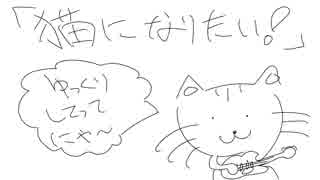 「猫になりたい!」
ゆっくり
してって
にゃ〜